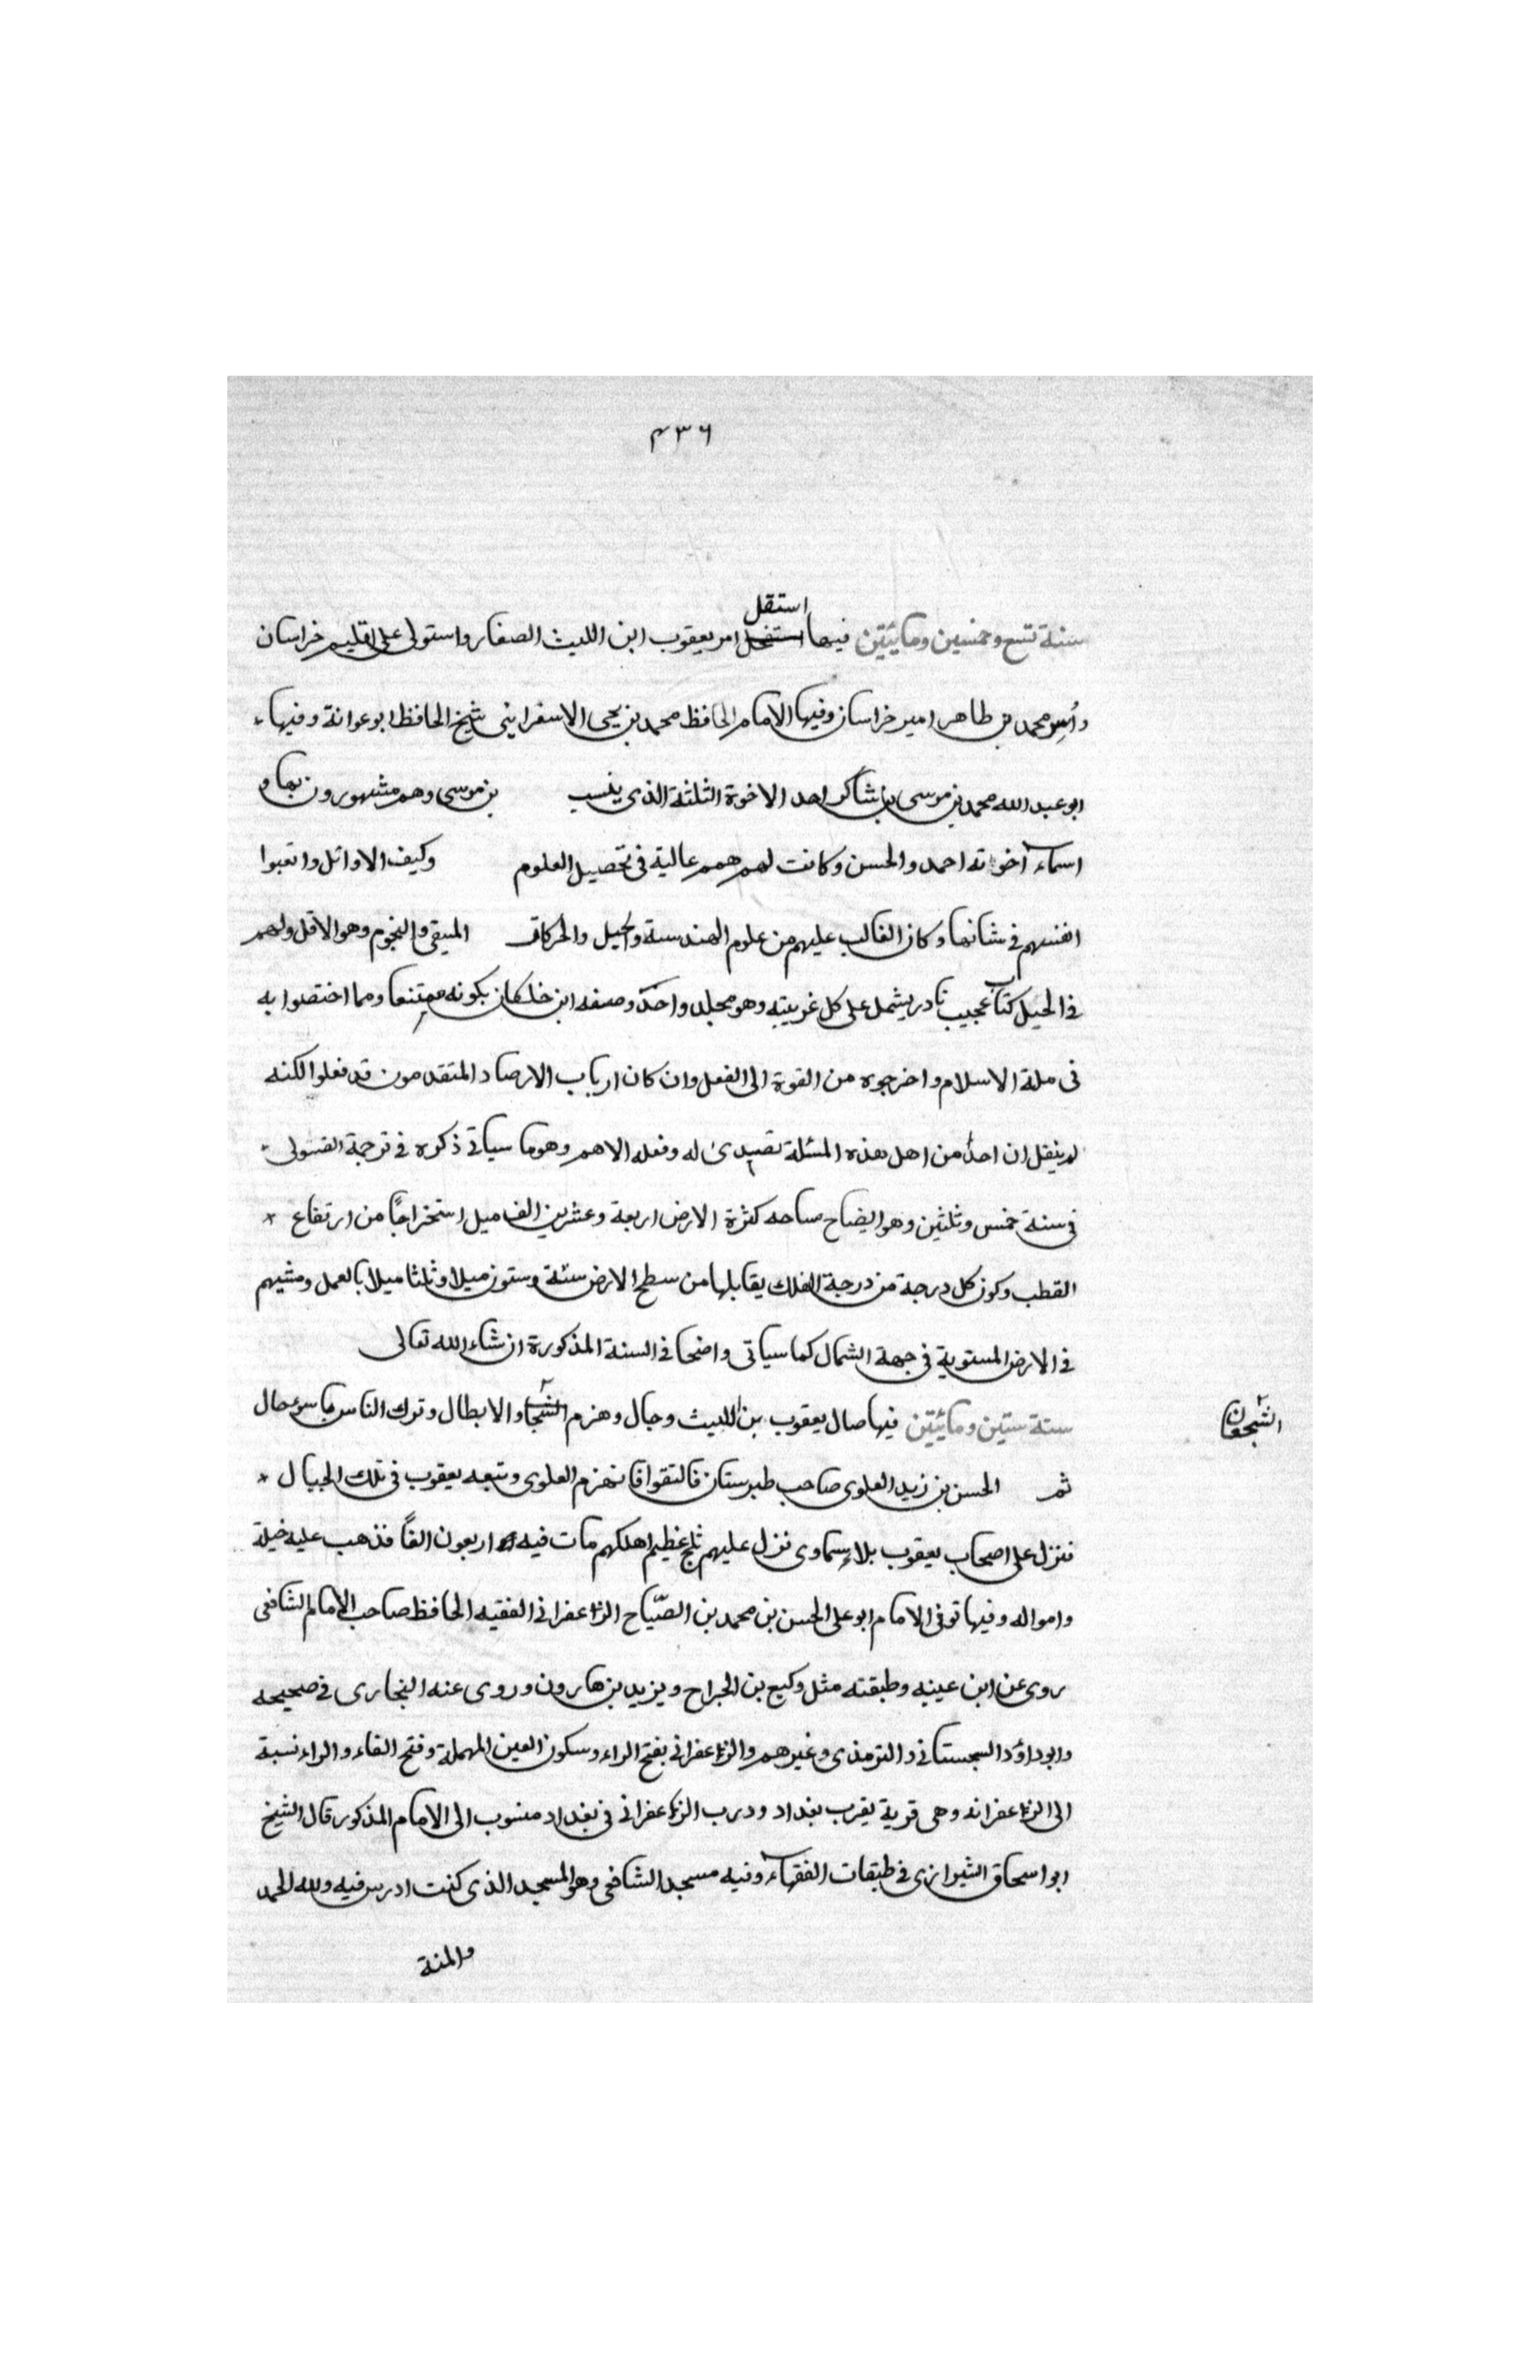 ٤٣٦
استقل
سنة تسع وخمسين ومايئتين فيها استفحل امر يعقوب ابن الليث الصفار واستولى على اقليم خراسان
وأسر محمد بن طاهر امير خراسان وفيها الامام الحافظ محمد بن يحيى الاسفراينى شيخ الحافظ ابو عوانة وفيها
ابو عبد الله محمد بن موسى بن شاكر احد الاخوة الثلثة الذى ينسب بن موسى وهم مشهورون بها و
اسماء اخواته احمد والحسن وكانت لهم همم عالية فى تحصيل العلوم وكيف الاوائل واتعبوا
انفسهم فى شانها وكان الغالب عليهم من علوم الهندسة والحيل والحركات المسيقى والنجوم وهو الاقل ولهم
فى الحيل كتاب عجيب نادر يشمل على كل غريبته وهو مجلد واحد وصفه ابن خلكان بكونه ممتنعا ومما اختصوا به
فى ملة الاسلام واخرجوه من القوة الى الفعل وان كان ارباب الارصاد المتقدمون قد فعلوا لكنه
لم ينقل ان احدا من اهل هذه المسئلة تصدى له وفعله الا هم وهو ما سياتى ذكره فى ترجمة الصولى
فى سنة خمس وثلثين وهو ايضاح مساحه كثرة الارض اربعة وعشرين الف ميل استخراجًا من ارتفاع
القطب وكون كل درجة من درجة الفلك يقابلها من سطح الارض ستة وستون ميلا وثلثا ميلا بالعمل ومشيهم
فى الارض المستوية فى جهة الشمال كما سياتى واضحا فى السنة المذكورة ان شاء الله تعالى
سنة ستين ومايئتين فيها صال يعقوب بن الليث وجال وهزم الشجا والابطال وترك الناس باسوء حال
الشجعان
ثم الحسن بن زيد العلوى صاحب طبرستان فالتقوا فانهزم العلوى وتبعه يعقوب فى تلك الجبال
فنزل على اصحاب يعقوب بلاء سماوى نزل عليهم ثلج عظيم اهلكهم مات فيه اربعون الفًا فذهب عليه خيلة
وامواله وفيها توفى الامام ابو على الحسن بن محمد بن الصّياح الزعفرانى الفقيه الحافظ صاحب الامام الشافعى
روى عن ابن عينيه وطبقته مثل وكيع بن الجراح ويزيد بن هارون وروى عنه البخارى فى صحيحه
وابو داؤد السجستانى والترمذى وغيرهم والزعفرانى بفتح الراء وسكون العين المهملة وفتح الفاء والراء نسبة
الى الزعفرانه وهى قرية بقرب بغداد ودرب الزعفرانى فى بغداد منسوب الى الامام المذكور قال الشيخ
ابو اسحاق الشيرازى فى طبقات الفقهاء وفيه مسجد الشافعى وهو المسجد الذى كنت ادرس فيه ولله الحمد
والمنة